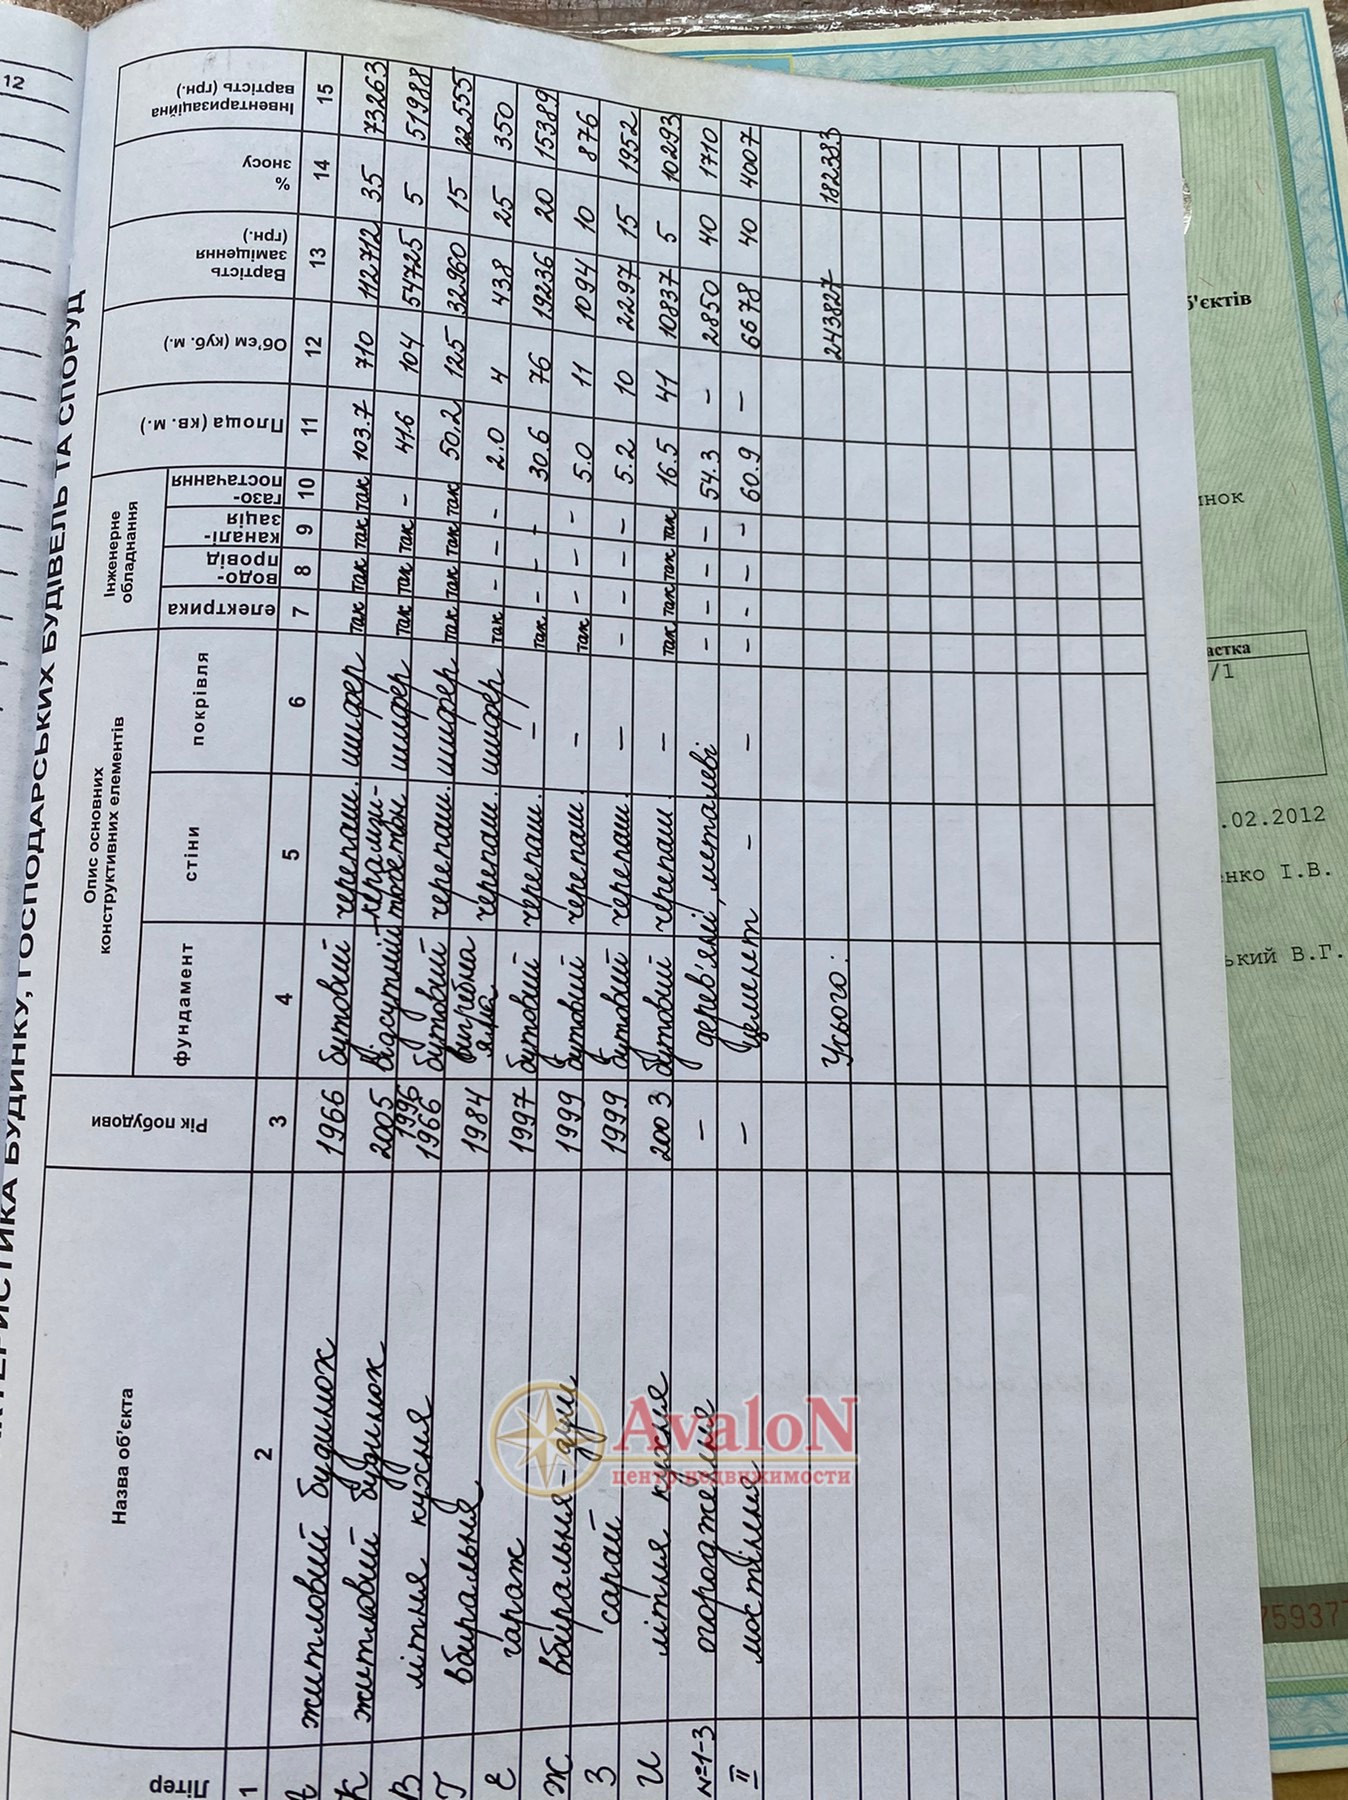 12
ХАРАКТЕРИСТИКА БУДИНКУ, ГОСПОДАРСЬКИХ БУДІВЕЛЬ ТА СПОРУД
Літер | Назва об'єкта | Рік побудови | Опис основних конструктивних елементів | Інженерне обладнання | Площа (кв. м.) | Об'єм (куб. м.) | Вартість заміщення (грн.) | % зносу | Інвентаризаційна вартість (грн.)
фундамент | стіни | покрівля | електрика | водо-провід | каналі-зація | газо-постачання
1 | 2 | 3 | 4 | 5 | 6 | 7 | 8 | 9 | 10 | 11 | 12 | 13 | 14 | 15
А | житловий будинок | 1966 | бутовий | черепаш. | шифер | так | так | так | так | 103.7 | 710 | 112712 | 35 | 73263
К | житловий будинок | 2005 | відсутній | | шифер | так | так | так | - | 41.6 | 104 | 54725 | 5 | 51988
В | літня кухня | 1996 1966 | бутовий | черепаш. | шифер | так | так | так | так | 50.2 | 125 | 32960 | 15 | 22555
Г | вбиральня | 1984 | вигребна яма | черепаш. | шифер | так | - | - | - | 2.0 | 4 | 438 | 25 | 350
Є | гараж | 1997 | бутовий | черепаш. | - | так | - | - | - | 30.6 | 76 | 19236 | 20 | 15389
Ж | вбиральня-душ | 1999 | бутовий | черепаш. | - | так | - | - | - | 5.0 | 11 | 1094 | 10 | 876
З | сарай | 1999 | бутовий | черепаш. | - | - | - | - | - | 5.2 | 10 | 2297 | 15 | 1952
И | літня кухня | 2003 | бутовий | черепаш. | - | так | так | так | так | 16.5 | 41 | 10837 | 5 | 10293
№1-3 | огородження | - | дерев'яні, металеві | - | - | - | - | 54.3 | - | 2850 | 40 | 1710
II | мостіння | - | цемент | - | - | - | - | - | - | 60.9 | - | 6678 | 40 | 4007
Усього: | 243827 | 182383
AvaloN
центр недвижимости
б'єктів
инок
астка
/1
.02.2012
нко І.В.
ький В.Г.
75937